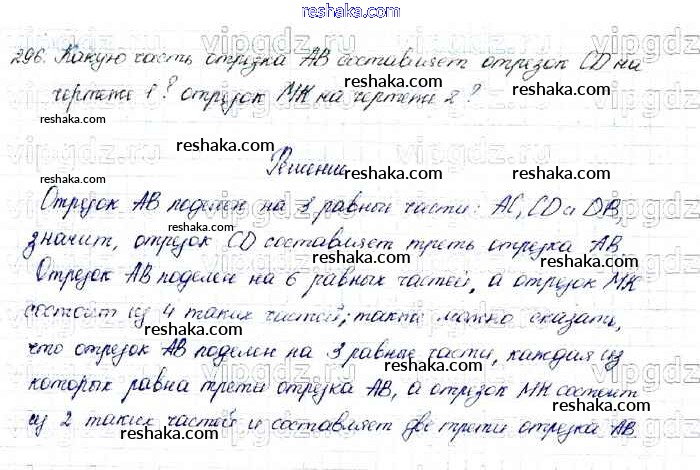 reshaka.com
296. Какую часть отрезка АВ составляет отрезок CD на
чертеже 1? отрезок МК на чертеже 2?
Решение
Отрезок АВ поделен на 3 равный части: АС, CD и DB,
значит, отрезок CD составляет треть отрезка АВ
Отрезок АВ поделен на 6 равных частей, а отрезок МК
состоит из 4 таких частей; также можно сказать,
что отрезок АВ поделен на 3 равные части, каждая из
которых равна трети отрезка АВ, а отрезок МК состоит
из 2 таких частей и составляет две трети отрезка АВ.
reshaka.com